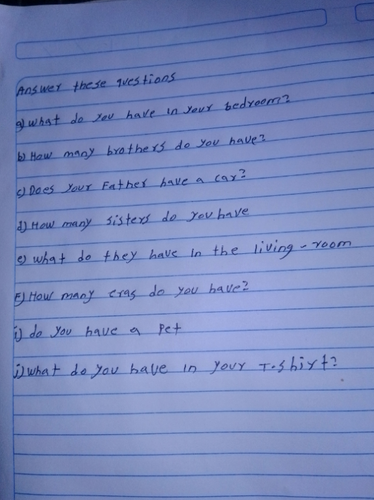 Answer these questions
a) What do you have in your bedroom?
b) How many brothers do you have?
c) Does your Father have a car?
d) How many sisters do you have
e) What do they have in the living-room
F) How many eras do you have?
i) do you have a Pet
j) What do you have in your T-shirt?